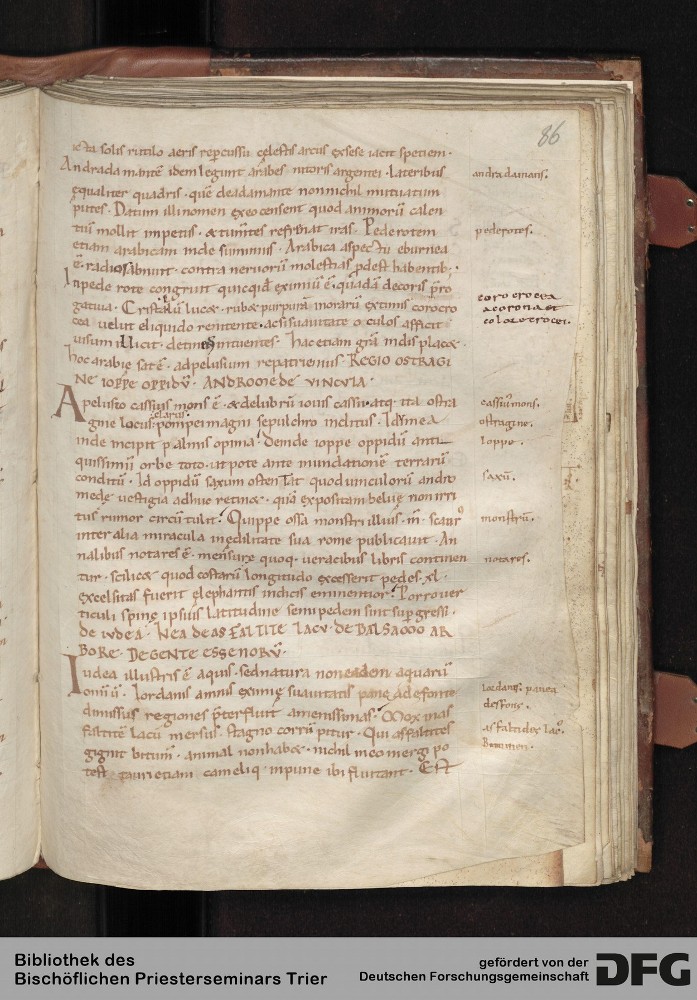 86
iecta solis rutilo aeris repercussu cęlestis arcus exsese iacit speciem·
Andrada mantē idem legunt arabes· nitoris argentei· lateribus
equaliter quadris· quē deadamante nonnichil mutuatum
putes· Datum illi nomen exeo censent quod animorū calen
tiū mollit impetus· & tumentes refrenat iras· Pederotem
etiam arabicam inde sumimus· Arabica aspectu eburnea
ē· radios abnuit· contra neruorū molestias pdest habentib;·
Inpede rote congruit quicqid eximiū ē· quadā decoris prero
gatiua· Cristallū luc&· rub& purpura morarū extimis corocro
cea velut eliquido renitente· ac si suauitate oculos afficit
uisum illicit· detinet intuentes· hac etiam gra indis plac&·
hoc arabię sat ē· adpelusium repatriemus· REGIO OSTRAGI
NE IOPPE OPPIDŪ· ANDROMEDE VINCVLA·
Apelusio cassius mons ē· & delubrū iouis cassii· atq· ita ostra
clarus·
gine locus· pompei magni sepulchro inclitus· Idumea
inde incipit palmis opima· deinde ioppe oppidū anti
quissimū orbe toto· ut pote ante inundationē terrarū
conditū· Id oppidū saxum ostentat quod uinculorū andro
medę vestigia adhuc retin&· quā expositam beluę non irri
tus rumor circūtulit· Quippe ossa monstri illius· m· scaur
inter alia miracula inedilitate sua rome publicauit· An
nalibus notares ē· mensurę quoq· veracibus libris continen
tur· scilic& quod costarū longitudo excesserit pedes· xl·
excelsitas fuerit elephantis indicis eminentior· Porro uer
ticuli spinę ipsius latitudine semipedem sint supgressi·
de iudea· NEA DE ASFALTITE LACV· DE BALSAMO AR
BORE· DE GENTE ESSENORŪ·
Iudea illustris ē aquis· sed natura non eadem aquarū
omniū· Iordanis amnis eximię suauitatis paneade fonte
dimissus regiones preterfluit amenissimas· Mox inas
faltitē lacū mersus· stagno corrūpitur· Qui asfaltites
gignit bitumē· animal non hab&· nichil in eo mergi po
test· tauri etiam cameliq· inpune ibi fluitant· Est
andradamans·
pederotes·
corocrocea
a corona et
colore crocei·
cassiusmons·
ostragine·
Ioppe·
saxū·
monstrū·
notares·
Iordanis· panea
des fons·
asfaltides lac
Bitumen·
Bibliothek des
Bischöflichen Priesterseminars Trier
gefördert von der
Deutschen Forschungsgemeinschaft
DFG